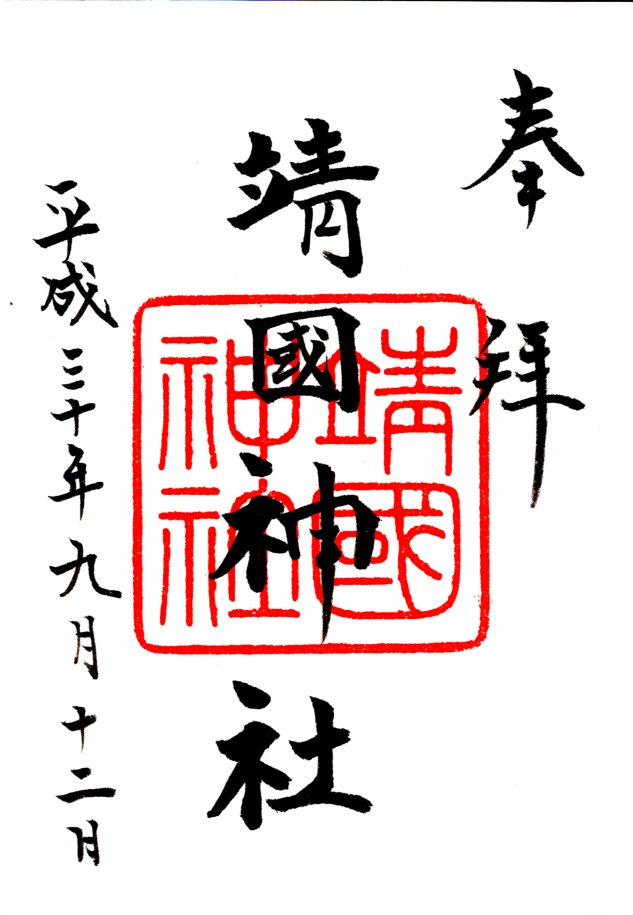 奉拝
靖國神社
靖國
神社
平成三十年九月十二日